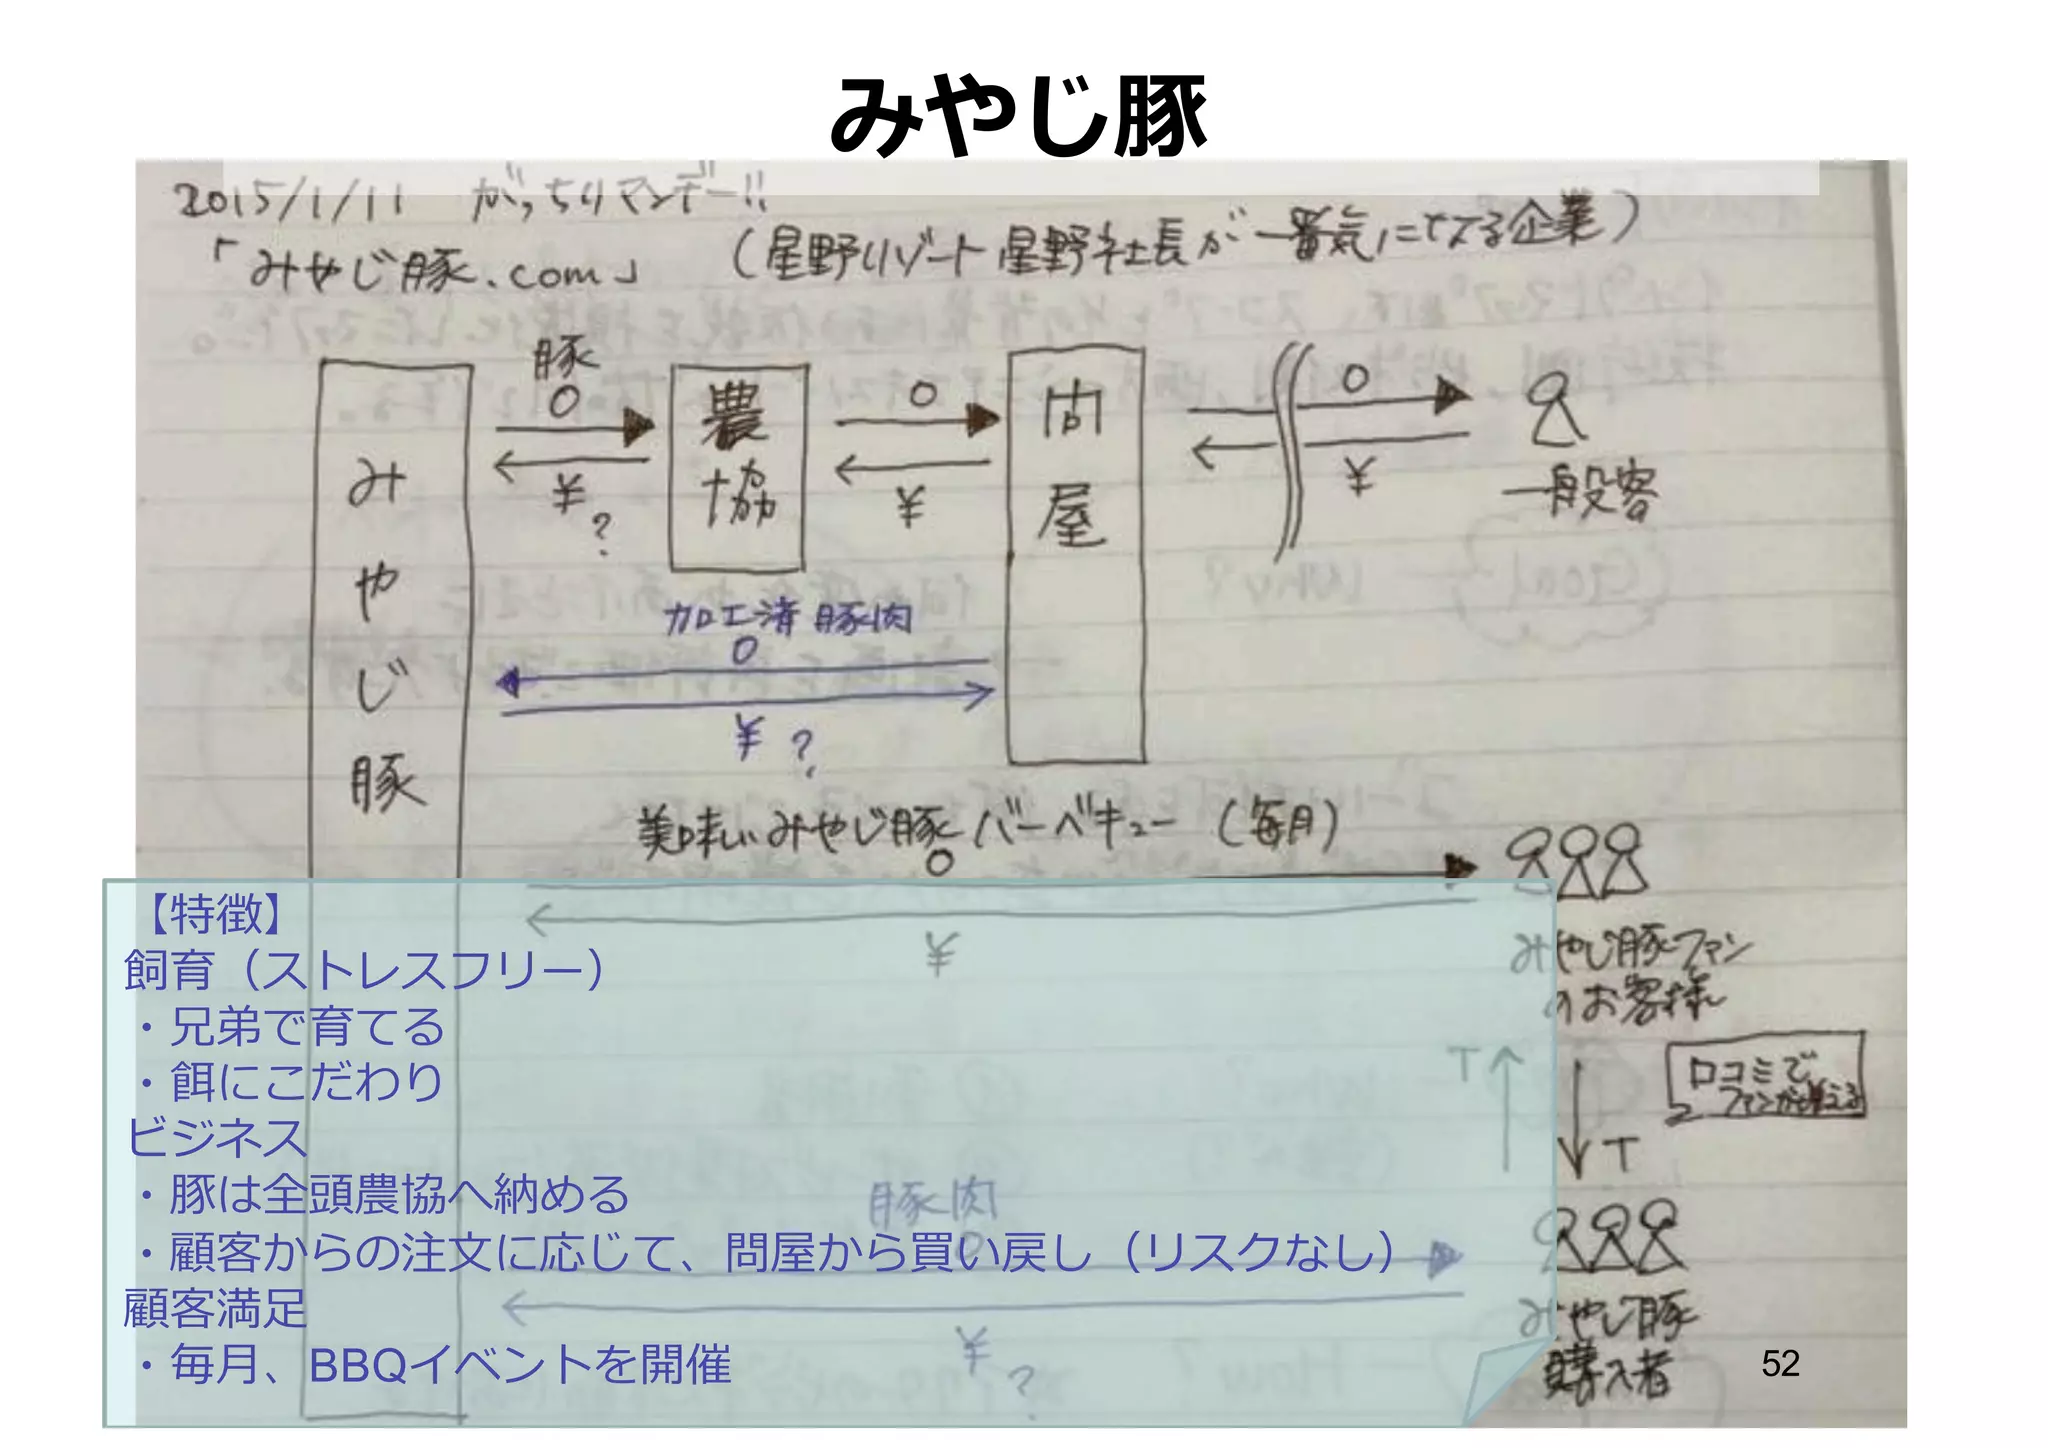 みやじ豚
2015/1/11 がっちりマンデー!!
「みやじ豚.com」 (星野リゾート星野社長が一番気になる企業)
豚
みやじ豚
農協
問屋
¥
?
¥
¥
一般客
加工済豚肉
¥ ?
美味しいみやじ豚バーベキュー (毎月)
¥
みやじ豚ファン
のお客様
T
T
口コミで
ファンが増える
豚肉
¥
?
みやじ豚
購入者
【特徴】
飼育（ストレスフリー）
・兄弟で育てる
・餌にこだわり
ビジネス
・豚は全頭農協へ納める
・顧客からの注文に応じて、問屋から買い戻し（リスクなし）
顧客満足
・毎月、BBQイベントを開催
52